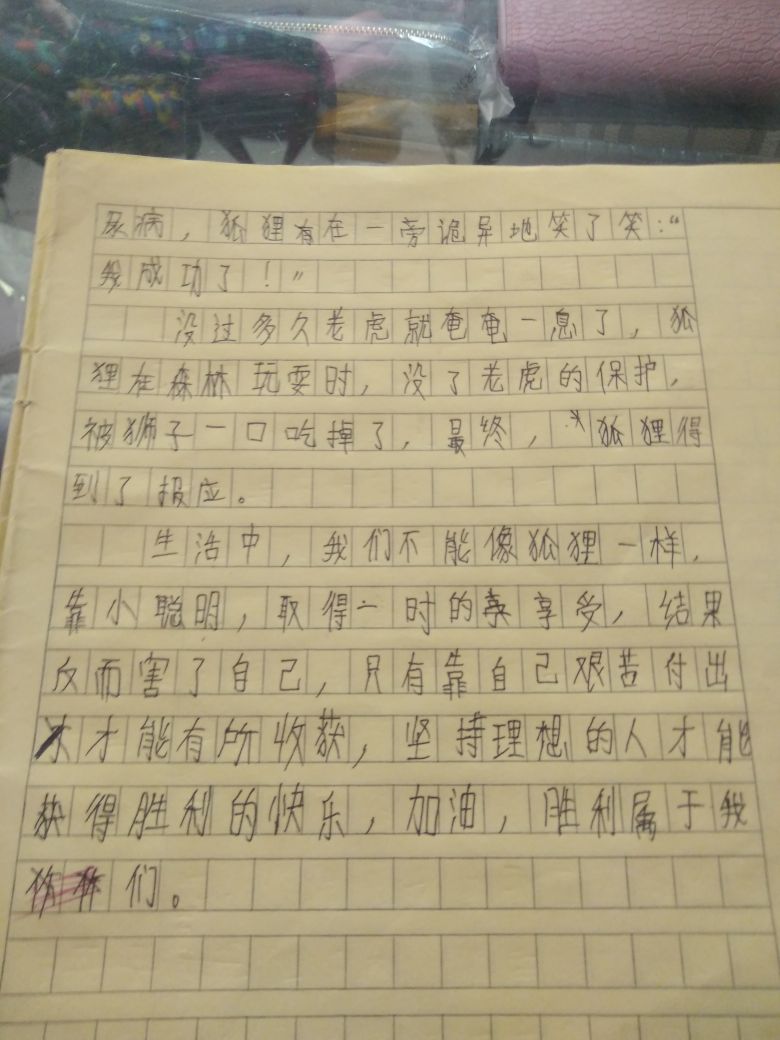 尿病，狐狸有在一旁诡异地笑了笑：“
我成功了！”
没过多久老虎就奄奄一息了，狐
狸在森林玩耍时，没了老虎的保护，
被狮子一口吃掉了，最终，狐狸得
到了报应。
生活中，我们不能像狐狸一样，
靠小聪明，取得一时的享受，结果
反而害了自己，只有靠自己艰苦付出
才能有所收获，坚持理想的人才能
获得胜利的快乐，加油，胜利属于我
们。